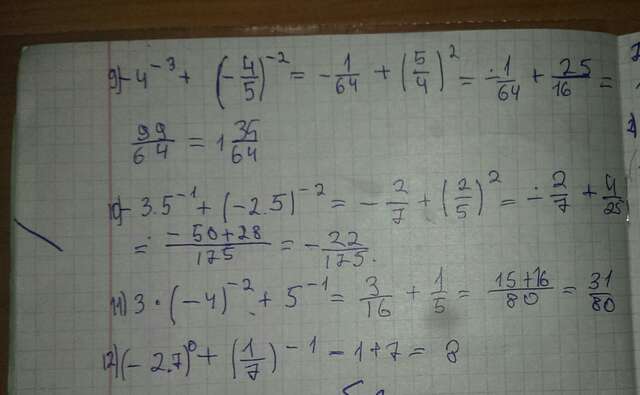 9) -4⁻³ + (-4/5)⁻² = -1/64 + (5/4)² = -1/64 + 25/16 =
99/64 = 1 35/64
10) -3.5⁻¹ + (-2.5)⁻² = -2/7 + (2/5)² = -2/7 + 4/25
= (-50+28)/175 = -22/175.
11) 3 · (-4)⁻² + 5⁻¹ = 3/16 + 1/5 = (15+16)/80 = 31/80
12) (-2.7)⁰ + (1/7)⁻¹ - 1+7 = 8